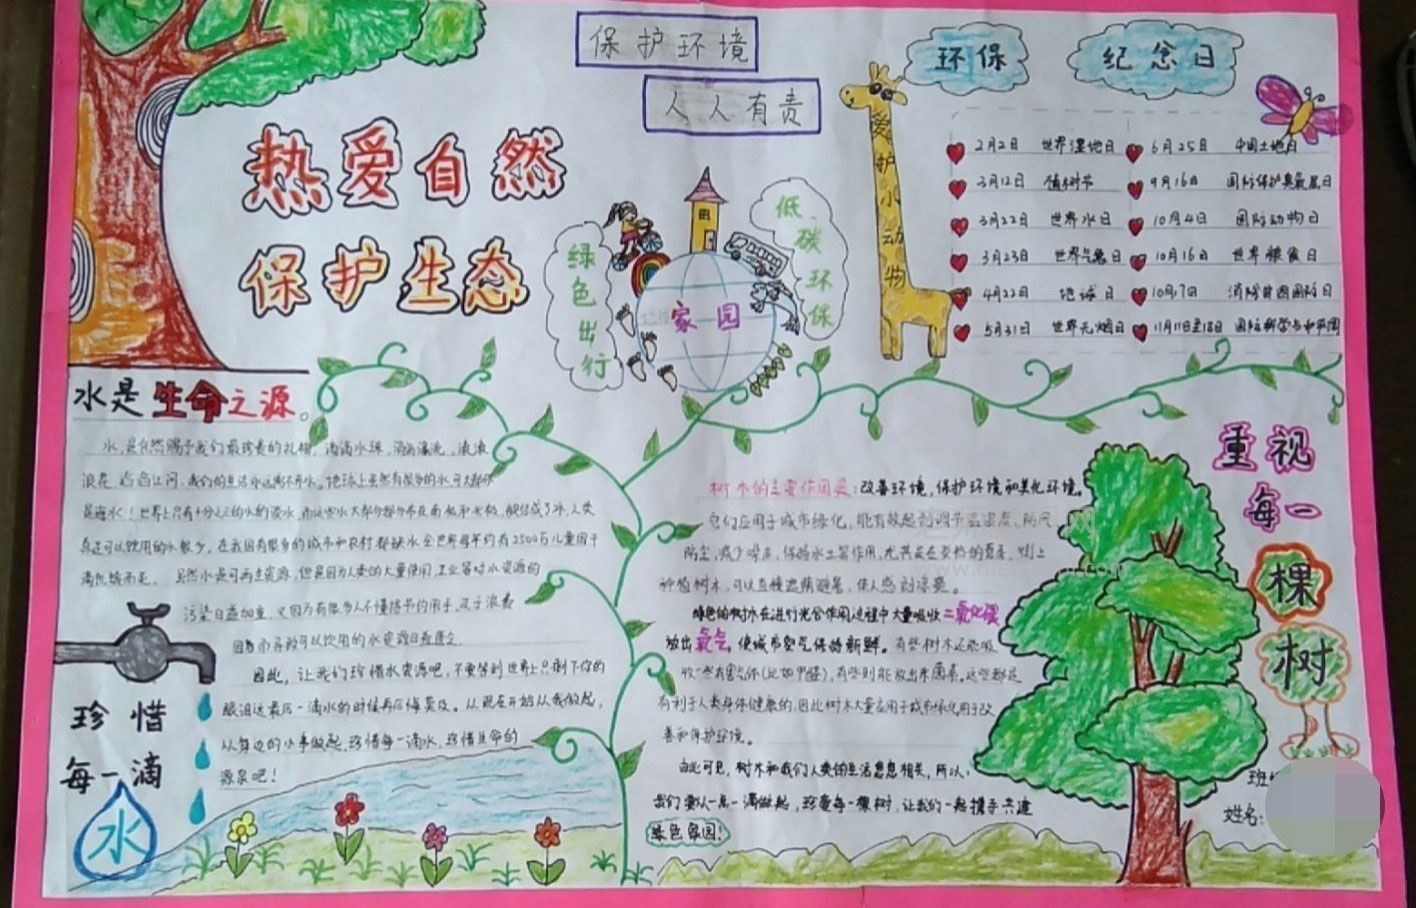 保护环境
人人有责
热爱自然
保护生态
绿色出行
家园
低碳环保
爱护小动物
环保
纪念日
2月2日 世界湿地日
3月12日 植树节
3月22日 世界水日
3月23日 世界气象日
4月22日 地球日
5月31日 世界无烟日
6月25日 中国土地日
9月16日 国际保护臭氧层日
10月4日 国际动物日
10月16日 世界粮食日
10月17日 消除贫困国际日
11月11日至18日 国际科学与和平周
水是生命之源。
水,是自然赐予我们最珍贵的礼物,滴滴水珠,涓涓溪流,滚滚
浪花,我们的生活永远离不开水。地球上虽然有很多的水,可大都
是海水!世界上只有十分之三的水的淡水,
真正可以饮用的水很少,在我国有很多的城市和农村都缺水全世界每年约有2500万儿童因干
渴饥饿而死。虽然水是可再生资源,但是因为人类的大量使用,工业等对水资源的
污染日益加重,又因为有很多人不懂得节约用水,
因此,让我们珍惜水资源吧,不要等到世界上只剩下你的
眼泪这最后一滴水的时候再后悔莫及。从现在开始从我做起,
从身边的小事做起,珍惜每一滴水,珍惜生命的
源泉吧!
珍惜
每一滴
水
树木的主要作用是:改善环境,保护环境和美化环境。
它们应用于城市绿化,能有效起到调节温湿度、防风、
防尘,减少噪声,保持水土等作用,尤其是在炎热的夏季,
种植树木,可以直接遮荫避暑,使人感到凉爽。
绿色的树木在进行光合作用过程中大量吸收二氧化碳
放出氧气,使城市空气保持新鲜。有些树木还能吸
收一些有害气体(比如甲醛),有些则能放出杀菌素,这些都是
有利于人类身体健康的,因此树木大量应用于城市绿化用于改
善和保护环境。
由此可见,树木和我们人类的生活息息相关,所以:
我们要从一点一滴做起,珍爱每一棵树,让我们一起携手共建
绿色家园!
重视
每一
棵
树
班
姓名: